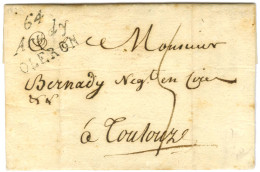 64
OLERON
Monsieur
Bernady Neg.t en
5
à Toulouze